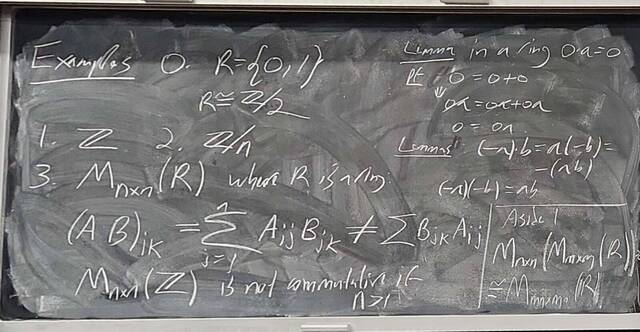 Examples 0. R={0,1}
R≅ℤ/2
1. ℤ 2. ℤ/n
3. M_{n×n}(R) where R is a ring.
(AB)_{ik} = \sum_{j=1}^{n} A_{ij} B_{jk} ≠ \sum B_{jk} A_{ij}
M_{n×n}(ℤ) is not commutative if n>1
Lemma in a ring 0·a=0
Pf 0=0+0
⇓ 0a=0a+0a
0=0a
Lemmas (-a)·b=a(-b)=
-(ab)
(-a)(-b)=ab
Aside 1
M_{n×n}(M_{m×m}(R))
≅M_{mn×mn}(R)